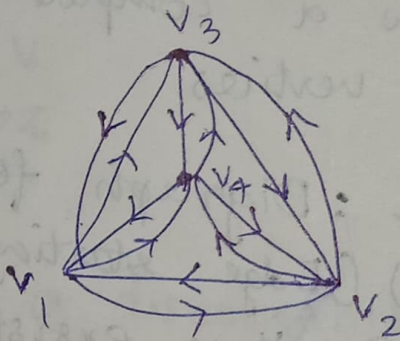 V3
V4
V1
V2